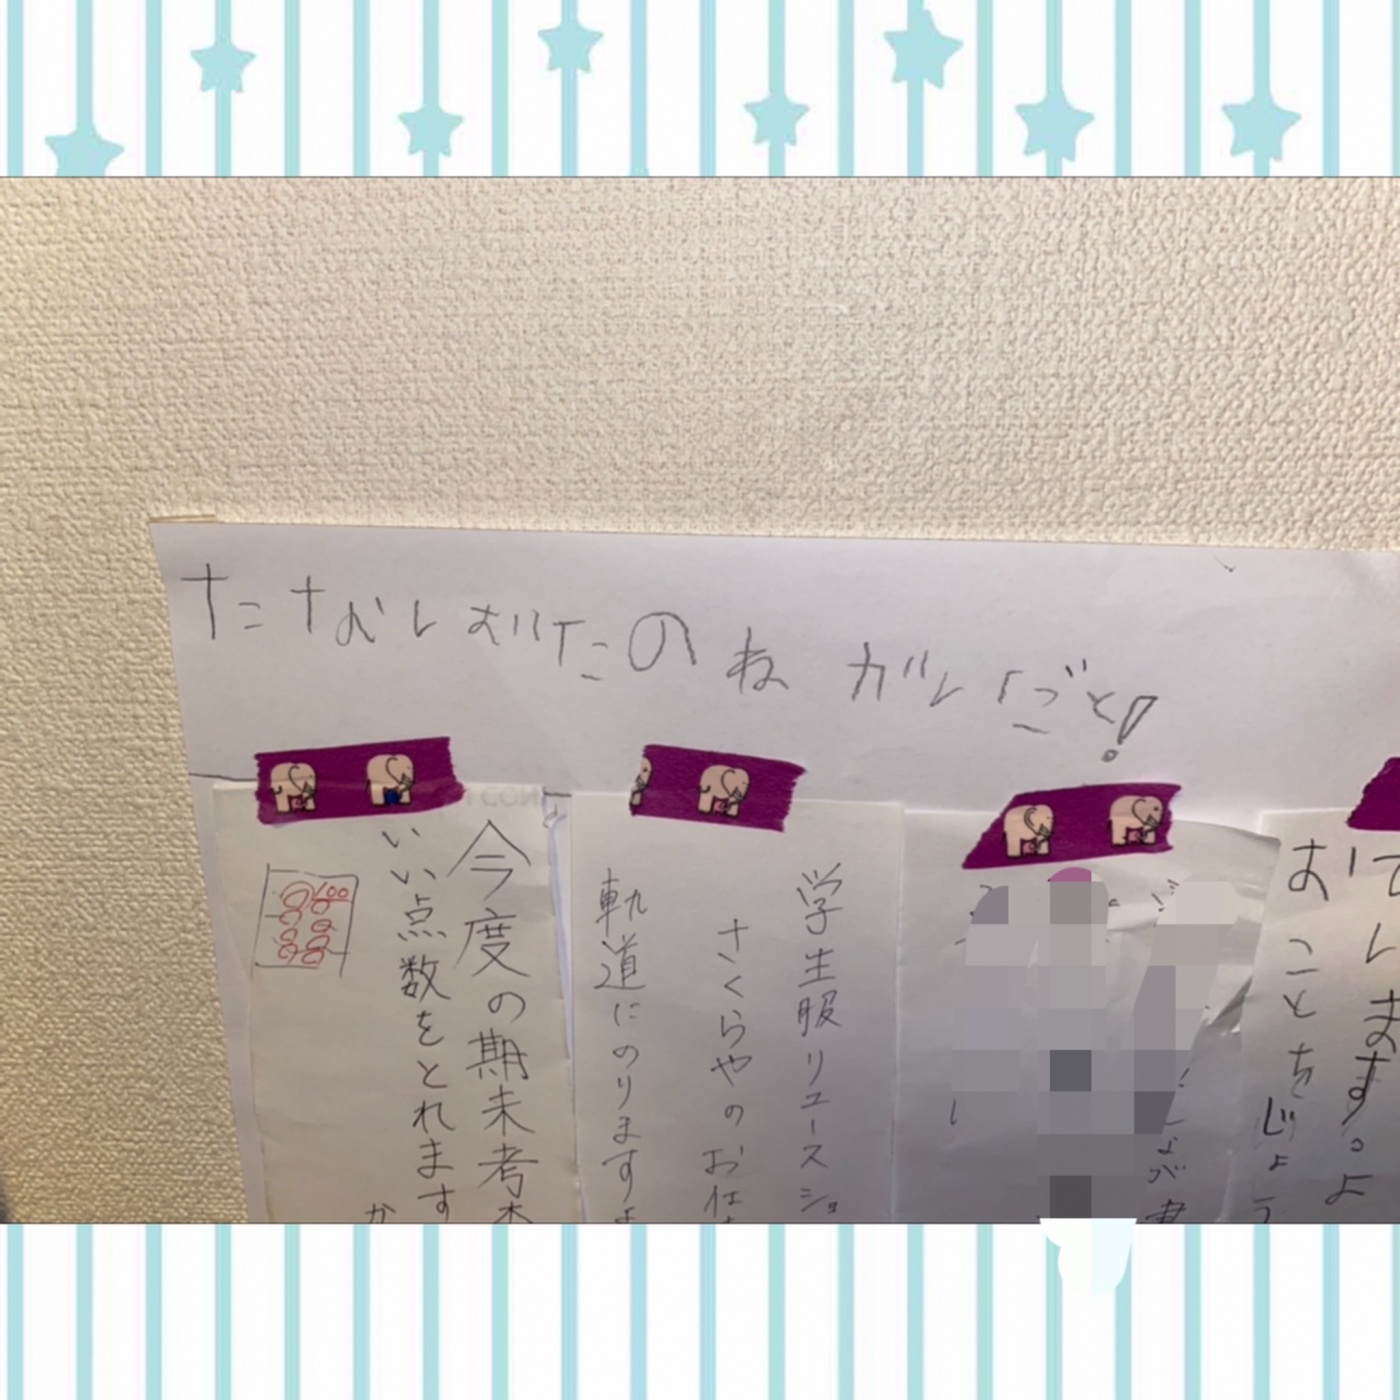 たなしばたのねがいごと!
今度の期末考査
いい点数をとれます
か
100
学生服リユースショ
さくらやのお仕
軌道にのりますよ
ています。よ
おことをじょう